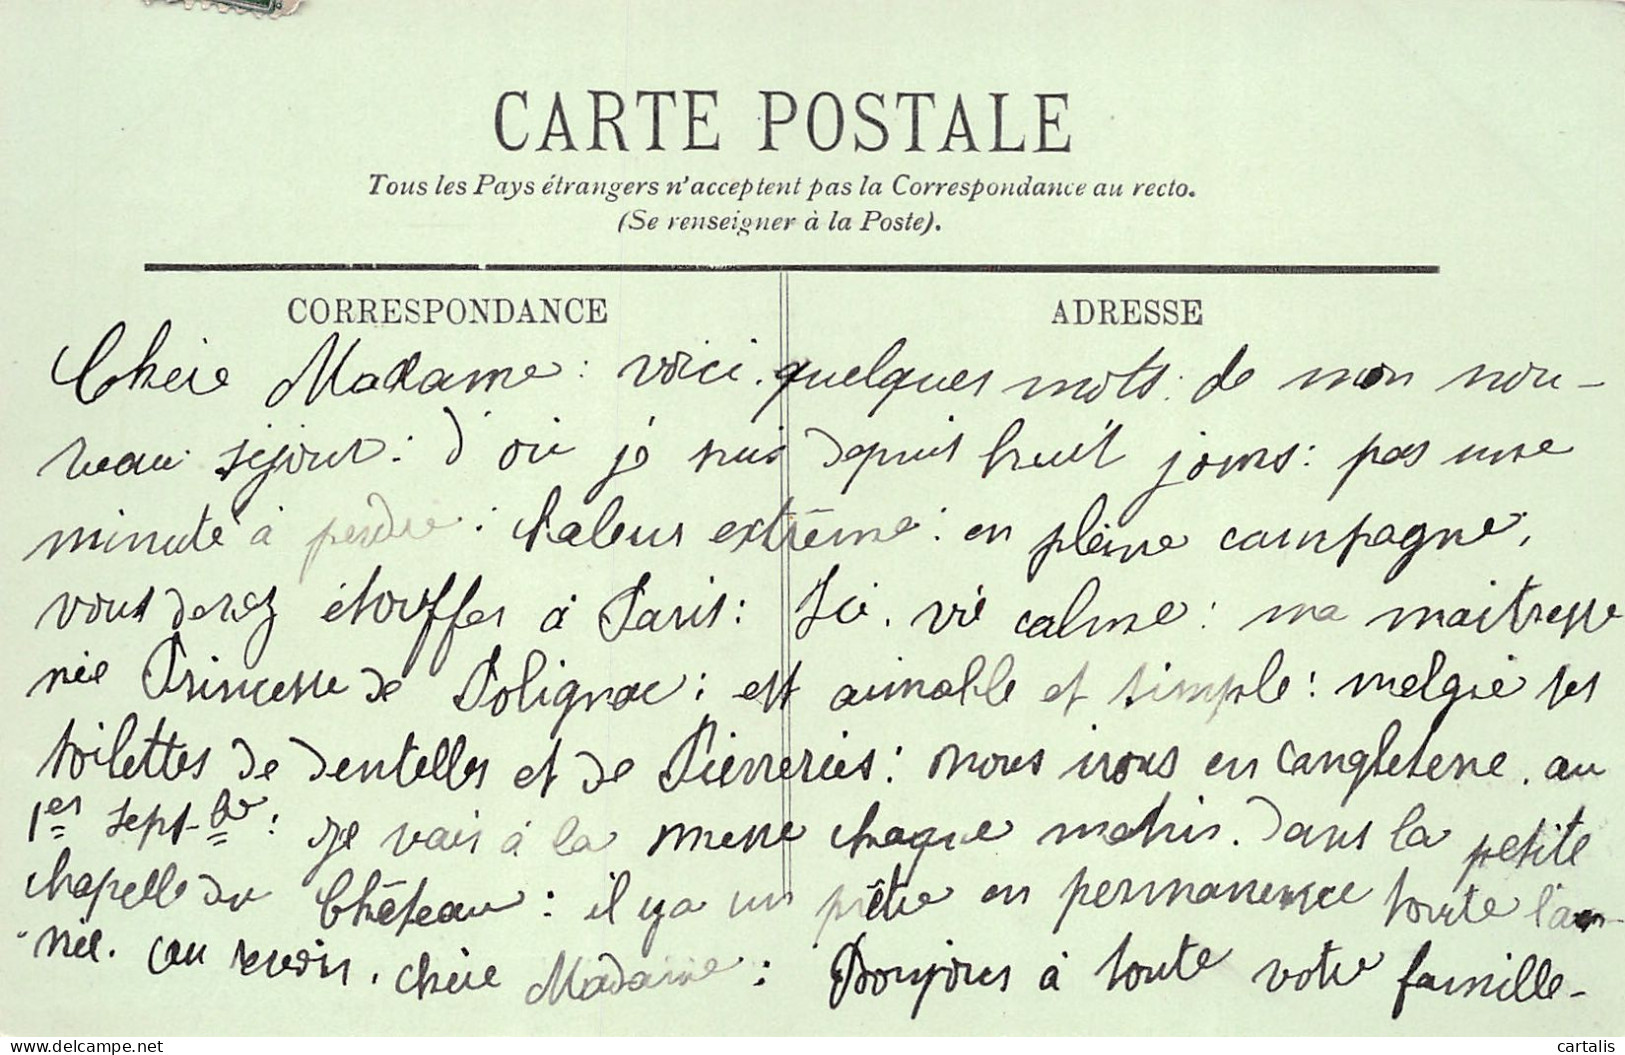 CARTE POSTALE
Tous les Pays étrangers n'acceptent pas la Correspondance au recto.
(Se renseigner à la Poste).
CORRESPONDANCE
ADRESSE
Chère Madame : voici quelques mots de mon nou-
veau séjour : d'où je suis depuis huit jours : pas une
minute à perdre : chaleur extrême : en pleine campagne,
vous devez étouffer à Paris : Ici, vie calme : ma maitresse
née Princesse de Polignac : est aimable et simple : malgré ses
toilettes de dentelles et de Pierreries : nous irons en Angleterre au
1er Sept-bre : Je vais à la messe chaque matin. dans la petite
chapelle du Château : il y a un prêtre en permanence toute l'an-
née. Au revoir, chère Madame : Bonjour à toute votre famille -
delcampe.net
cartalis